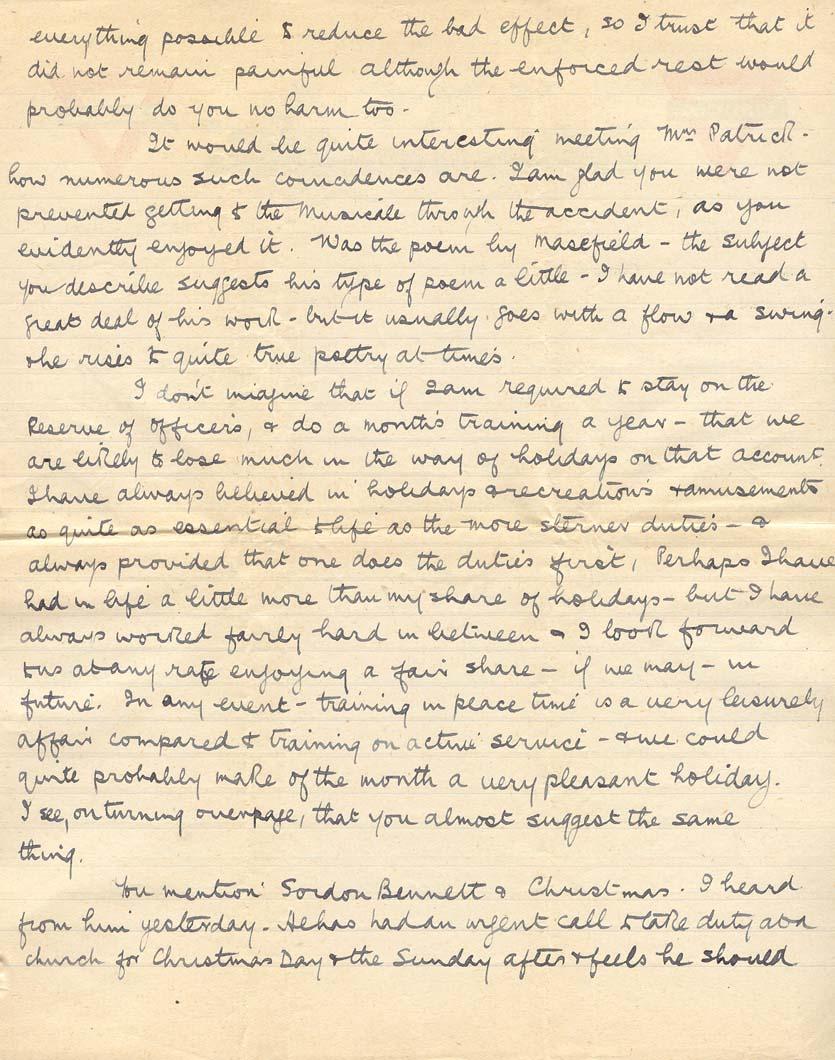 everything possible to reduce the bad effect, so I trust that it
did not remain painful although the enforced rest would
probably do you no harm too.
It would be quite interesting meeting Mrs Patrick -
how numerous such coincidences are. I am glad you were not
prevented getting to the Musicale through the accident, as you
evidently enjoyed it. Was the poem by Masefield - the subject
you describe suggests his type of poem a little - I have not read a
great deal of his work - but it usually goes with a flow & a swing -
& he rises to quite true poetry at times.
I don't imagine that if I am required to stay on the
Reserve of Officers, & do a month's training a year - that we
are likely to lose much in the way of holidays on that account.
I have always believed in holidays & recreations & amusements
as quite as essential to life as the more sterner duties - &
always provided that one does the duties first, Perhaps I have
had in life a little more than my share of holidays - but I have
always worked fairly hard in between & I look forward
to us at any rate enjoying a fair share - if we may - in
future. In any event - training in peace time is a very leisurely
affair compared to training on active service - & we could
quite probably make of the month a very pleasant holiday.
I see, on turning over page, that you almost suggest the same
thing.
You mention Gordon Bennett & Christmas. I heard
from him yesterday. He has had an urgent call to take duty at a
church for Christmas Day & the Sunday after & feels he should